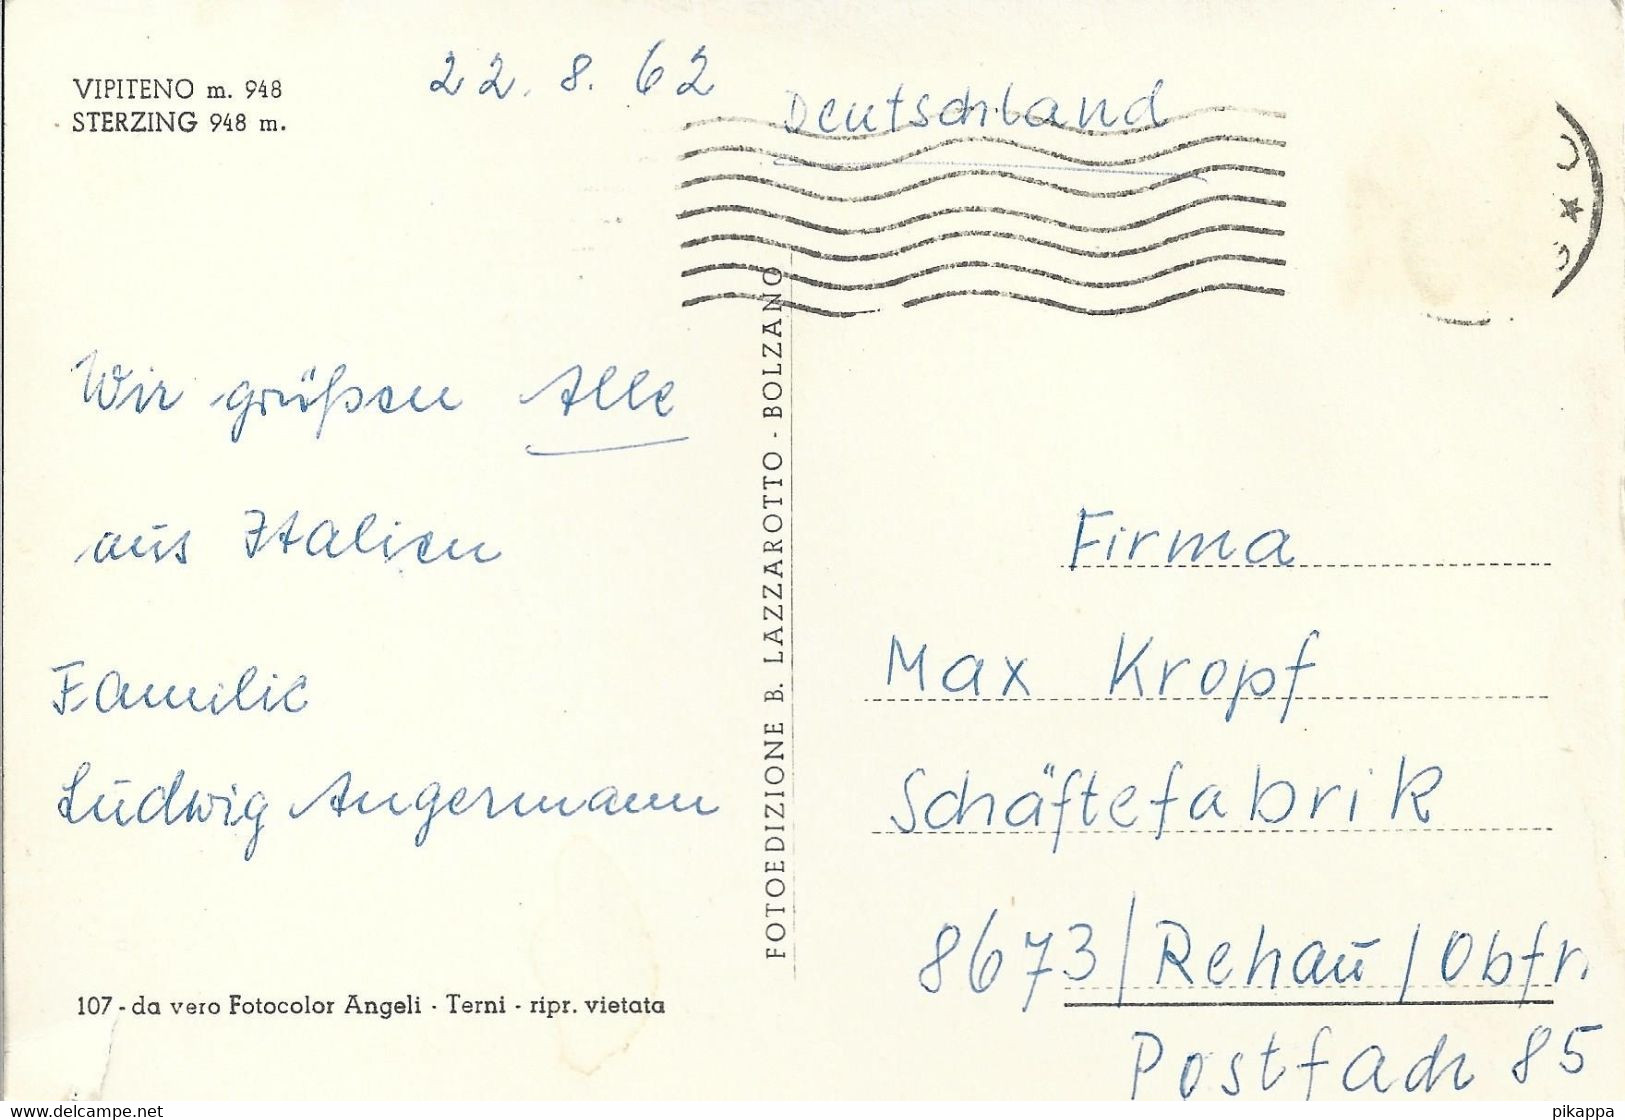 VIPITENO m. 948
STERZING 948 m.
22. 8. 62
Deutschland
Wir grüßen Alle
aus Italien
Familie
Ludwig Angermann
107 - da vero Fotocolor Angeli - Terni - ripr. vietata
FOTOEDIZIONE B. LAZZAROTTO - BOLZANO
Firma
Max Kropf
Schäftefabrik
8673/Rehau/Obfr.
Postfach 85
www.delcampe.net
pikappa